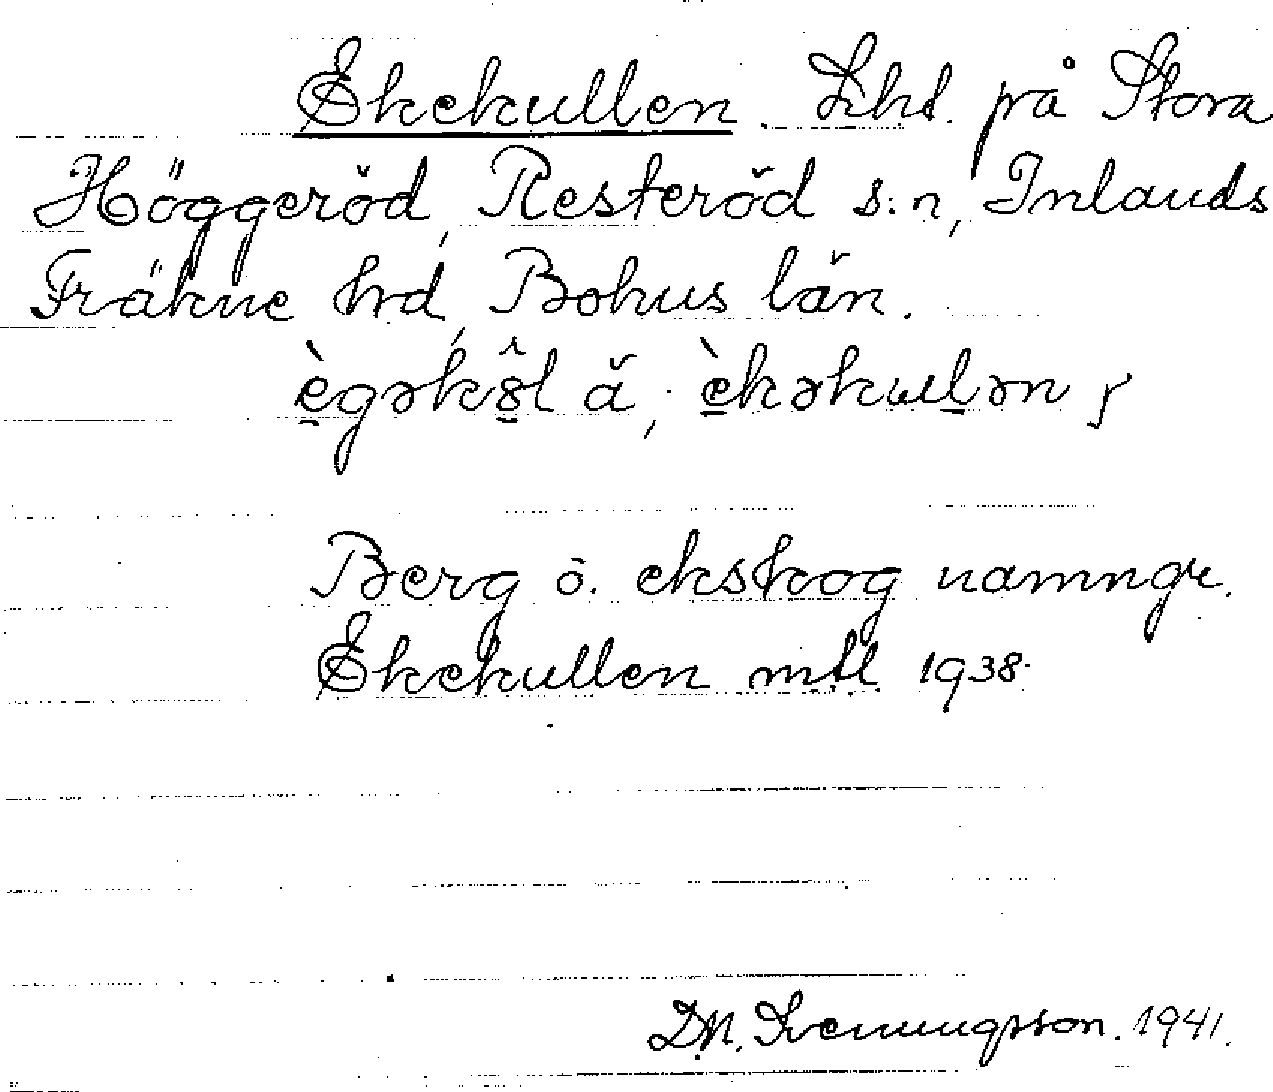 Ekekullen. Lht. på Stora
Höggeröd, Resteröd s:n, Inlands
Fräkne hd, Bohus län.
Berg o. ekskog namngr.
Ekekullen mtl 1938.
D.N. Svenningsson. 1941.